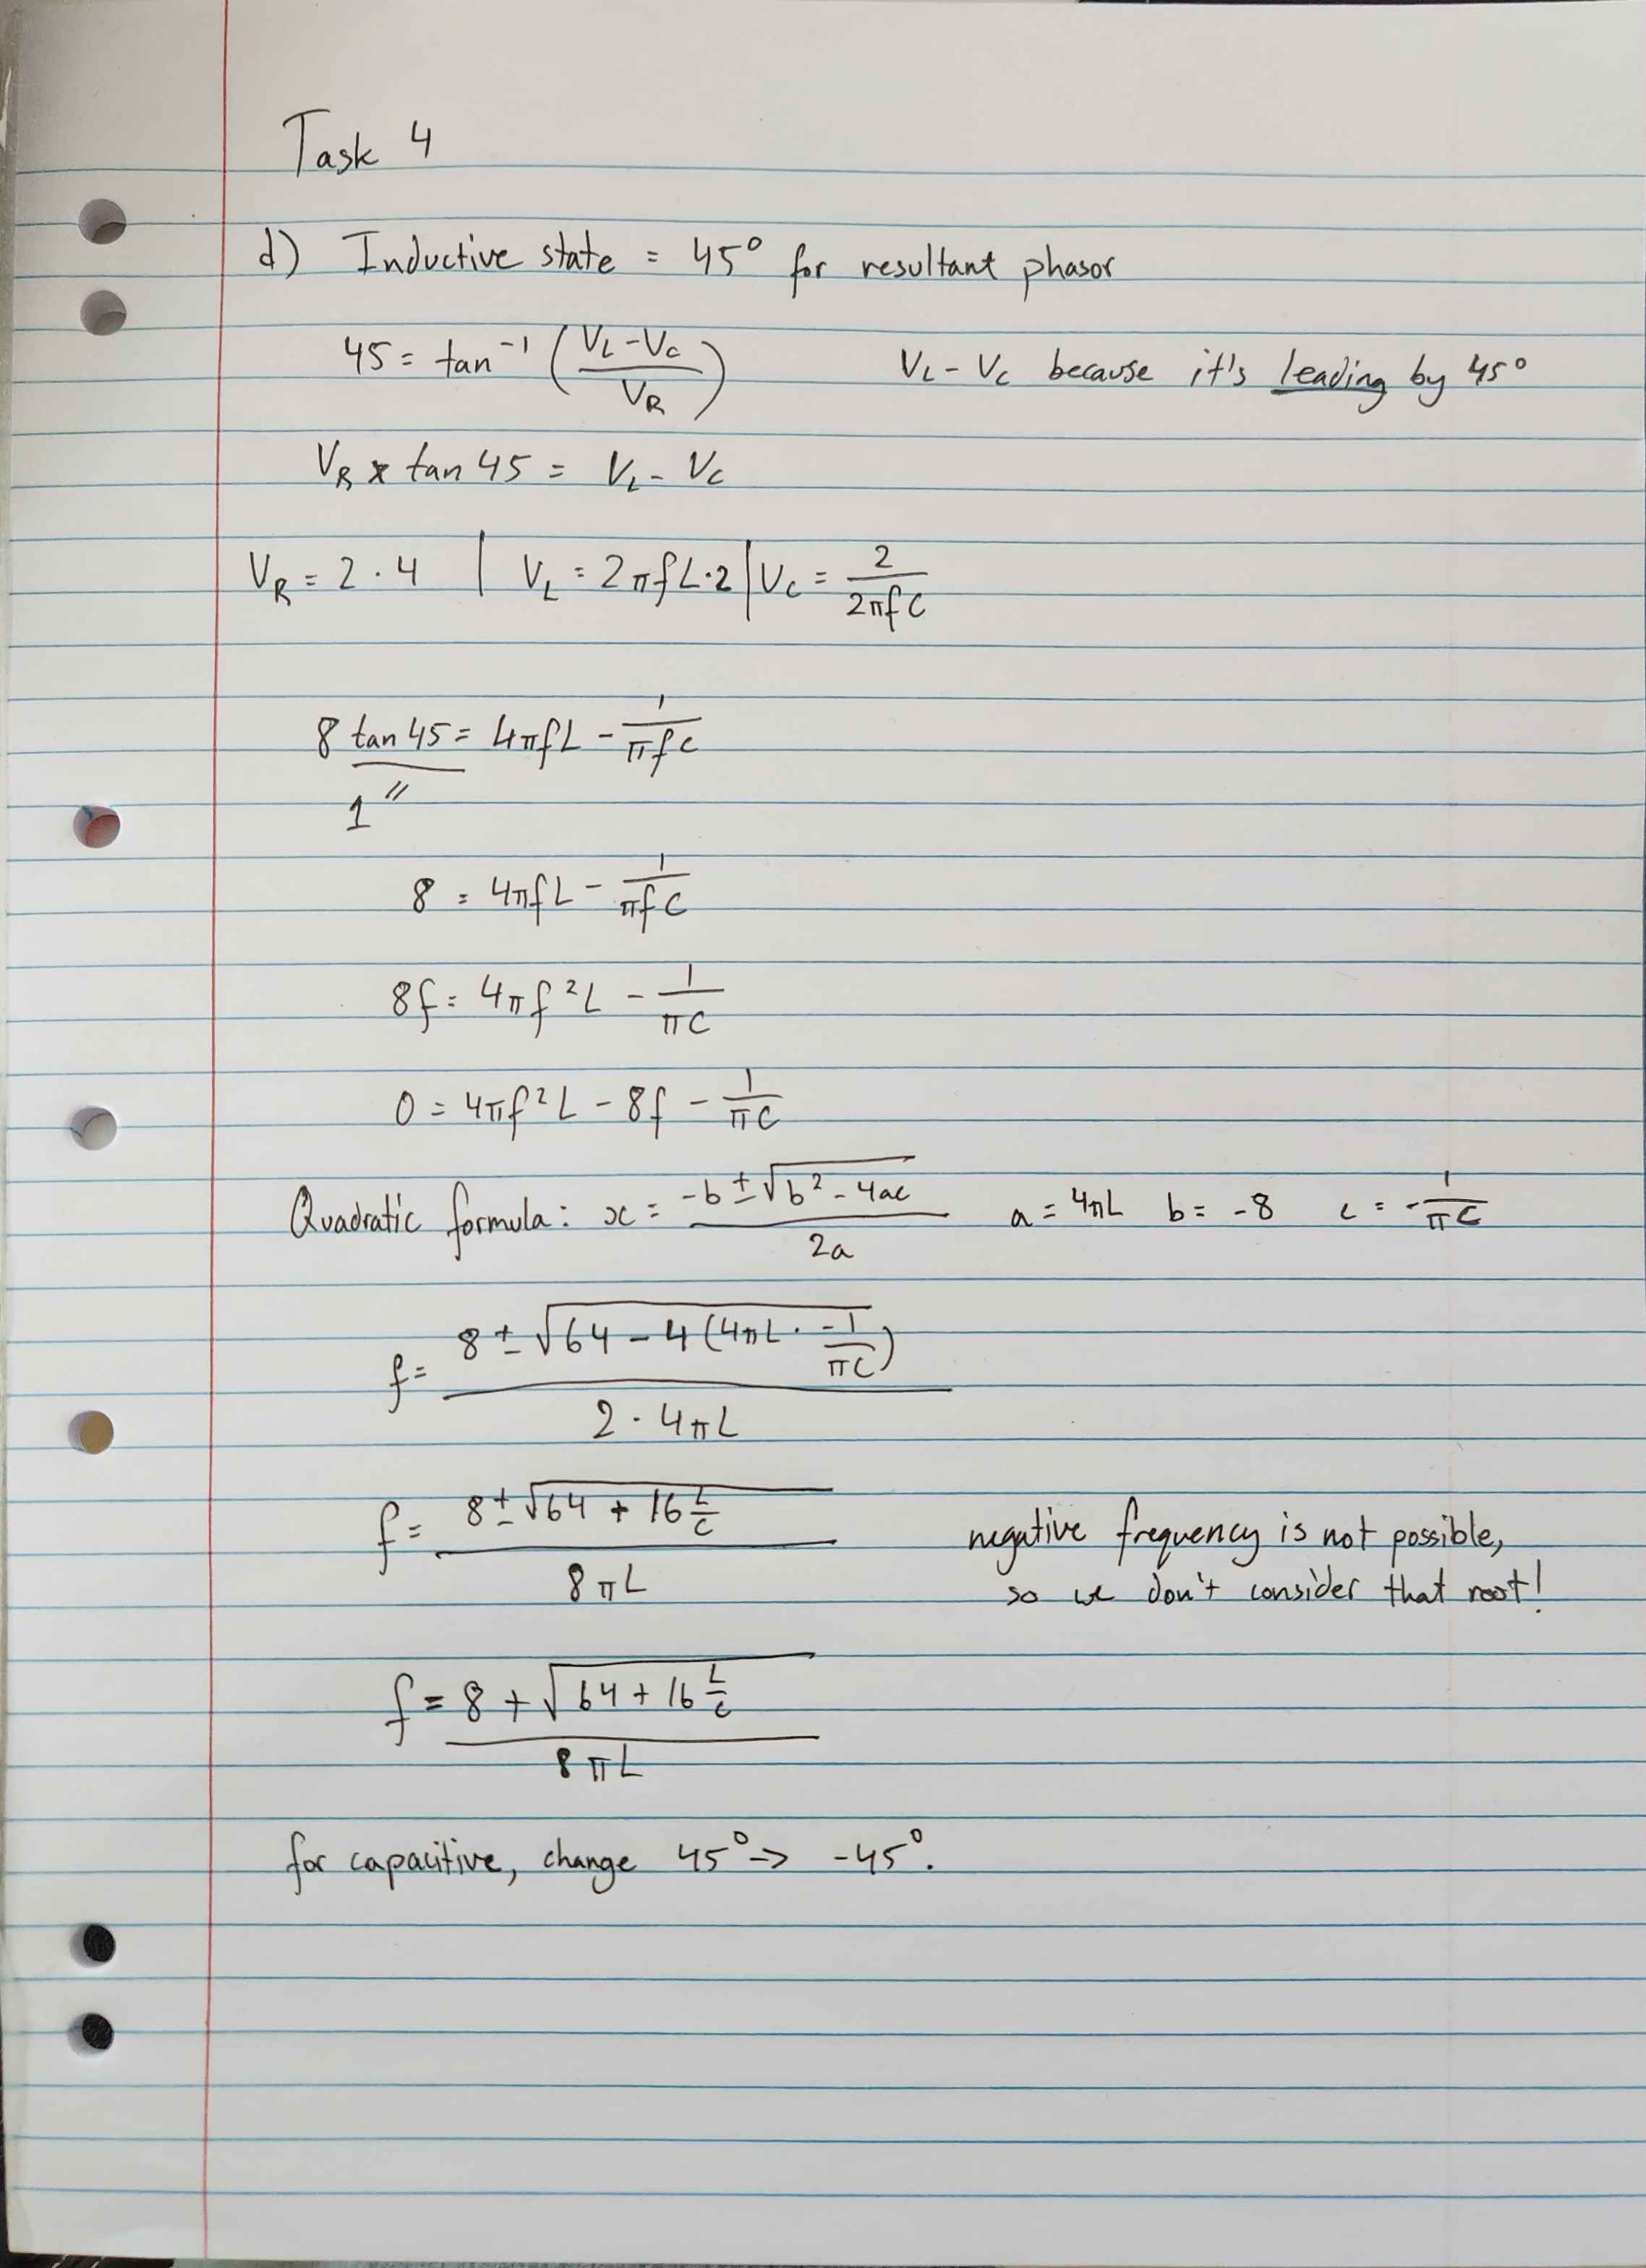 Task 4
d) Inductive state = 45° for resultant phasor
45 = tan⁻¹ ( (V_L - V_C) / V_R ) V_L - V_C because it's leading by 45°
V_R × tan 45 = V_L - V_C
V_R = 2 · 4 | V_L = 2πfL·2 | V_C = 2 / 2πfC
8 tan 45 = 4πfL - 1/πfC
1 〃
8 = 4πfL - 1/πfC
8f = 4πf²L - 1/πC
0 = 4πf²L - 8f - 1/πC
Quadratic formula: x = (-b ± √(b² - 4ac)) / 2a a = 4πL b = -8 c = -1/πC
f = (8 ± √(64 - 4(4πL · -1/πC))) / (2 · 4πL)
f = (8 ± √(64 + 16 L/C)) / 8πL negative frequency is not possible,
so we don't consider that root!
f = (8 + √(64 + 16 L/C)) / 8πL
for capacitive, change 45° -> -45°.